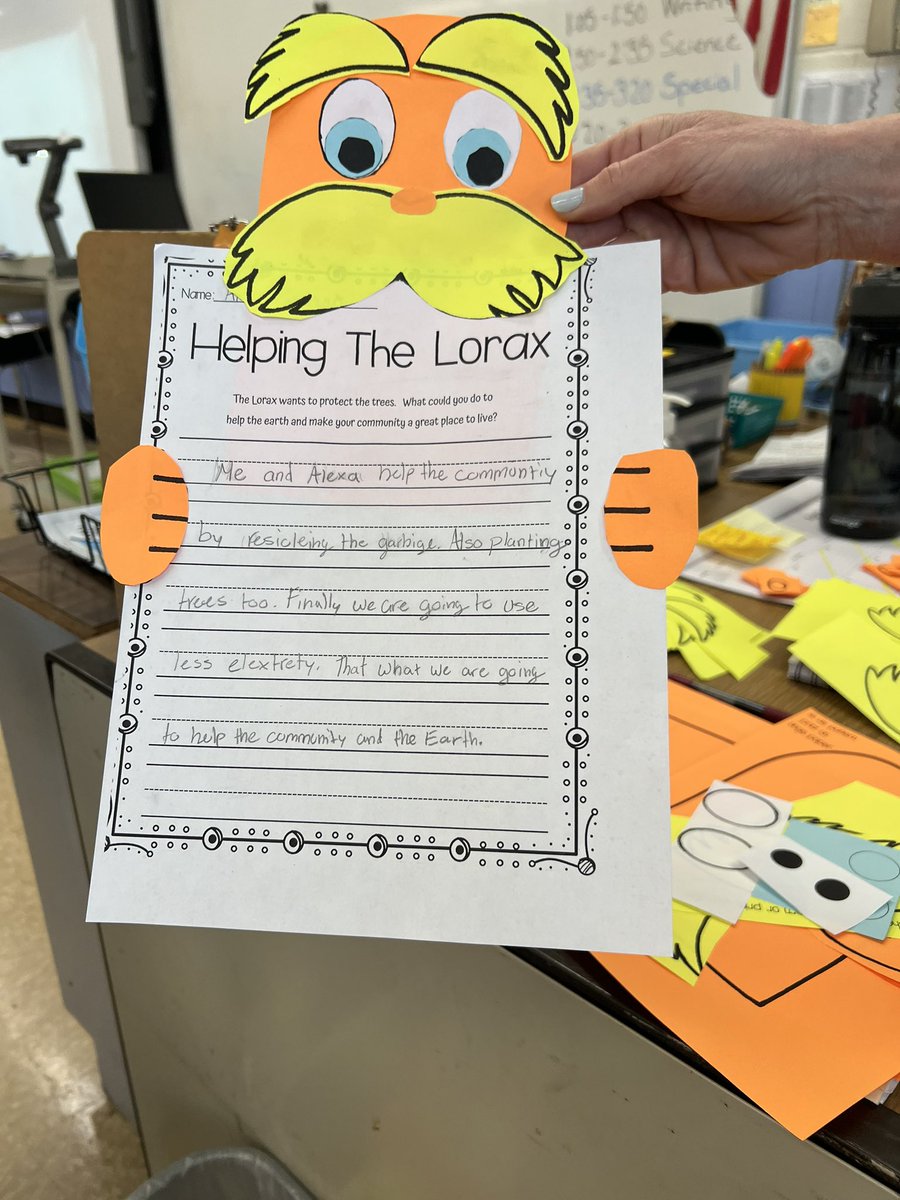 105-150 Writing
Science
320 Special
Name: A
Helping The Lorax
The Lorax wants to protect the trees. What could you do to
help the earth and make your community a great place to live?
Me and Alexa help the communtiy
by resicleing the garbige. Also planting
trees too. Finally we are going to use
less elextrety. That what we are going
to help the community and the Earth.